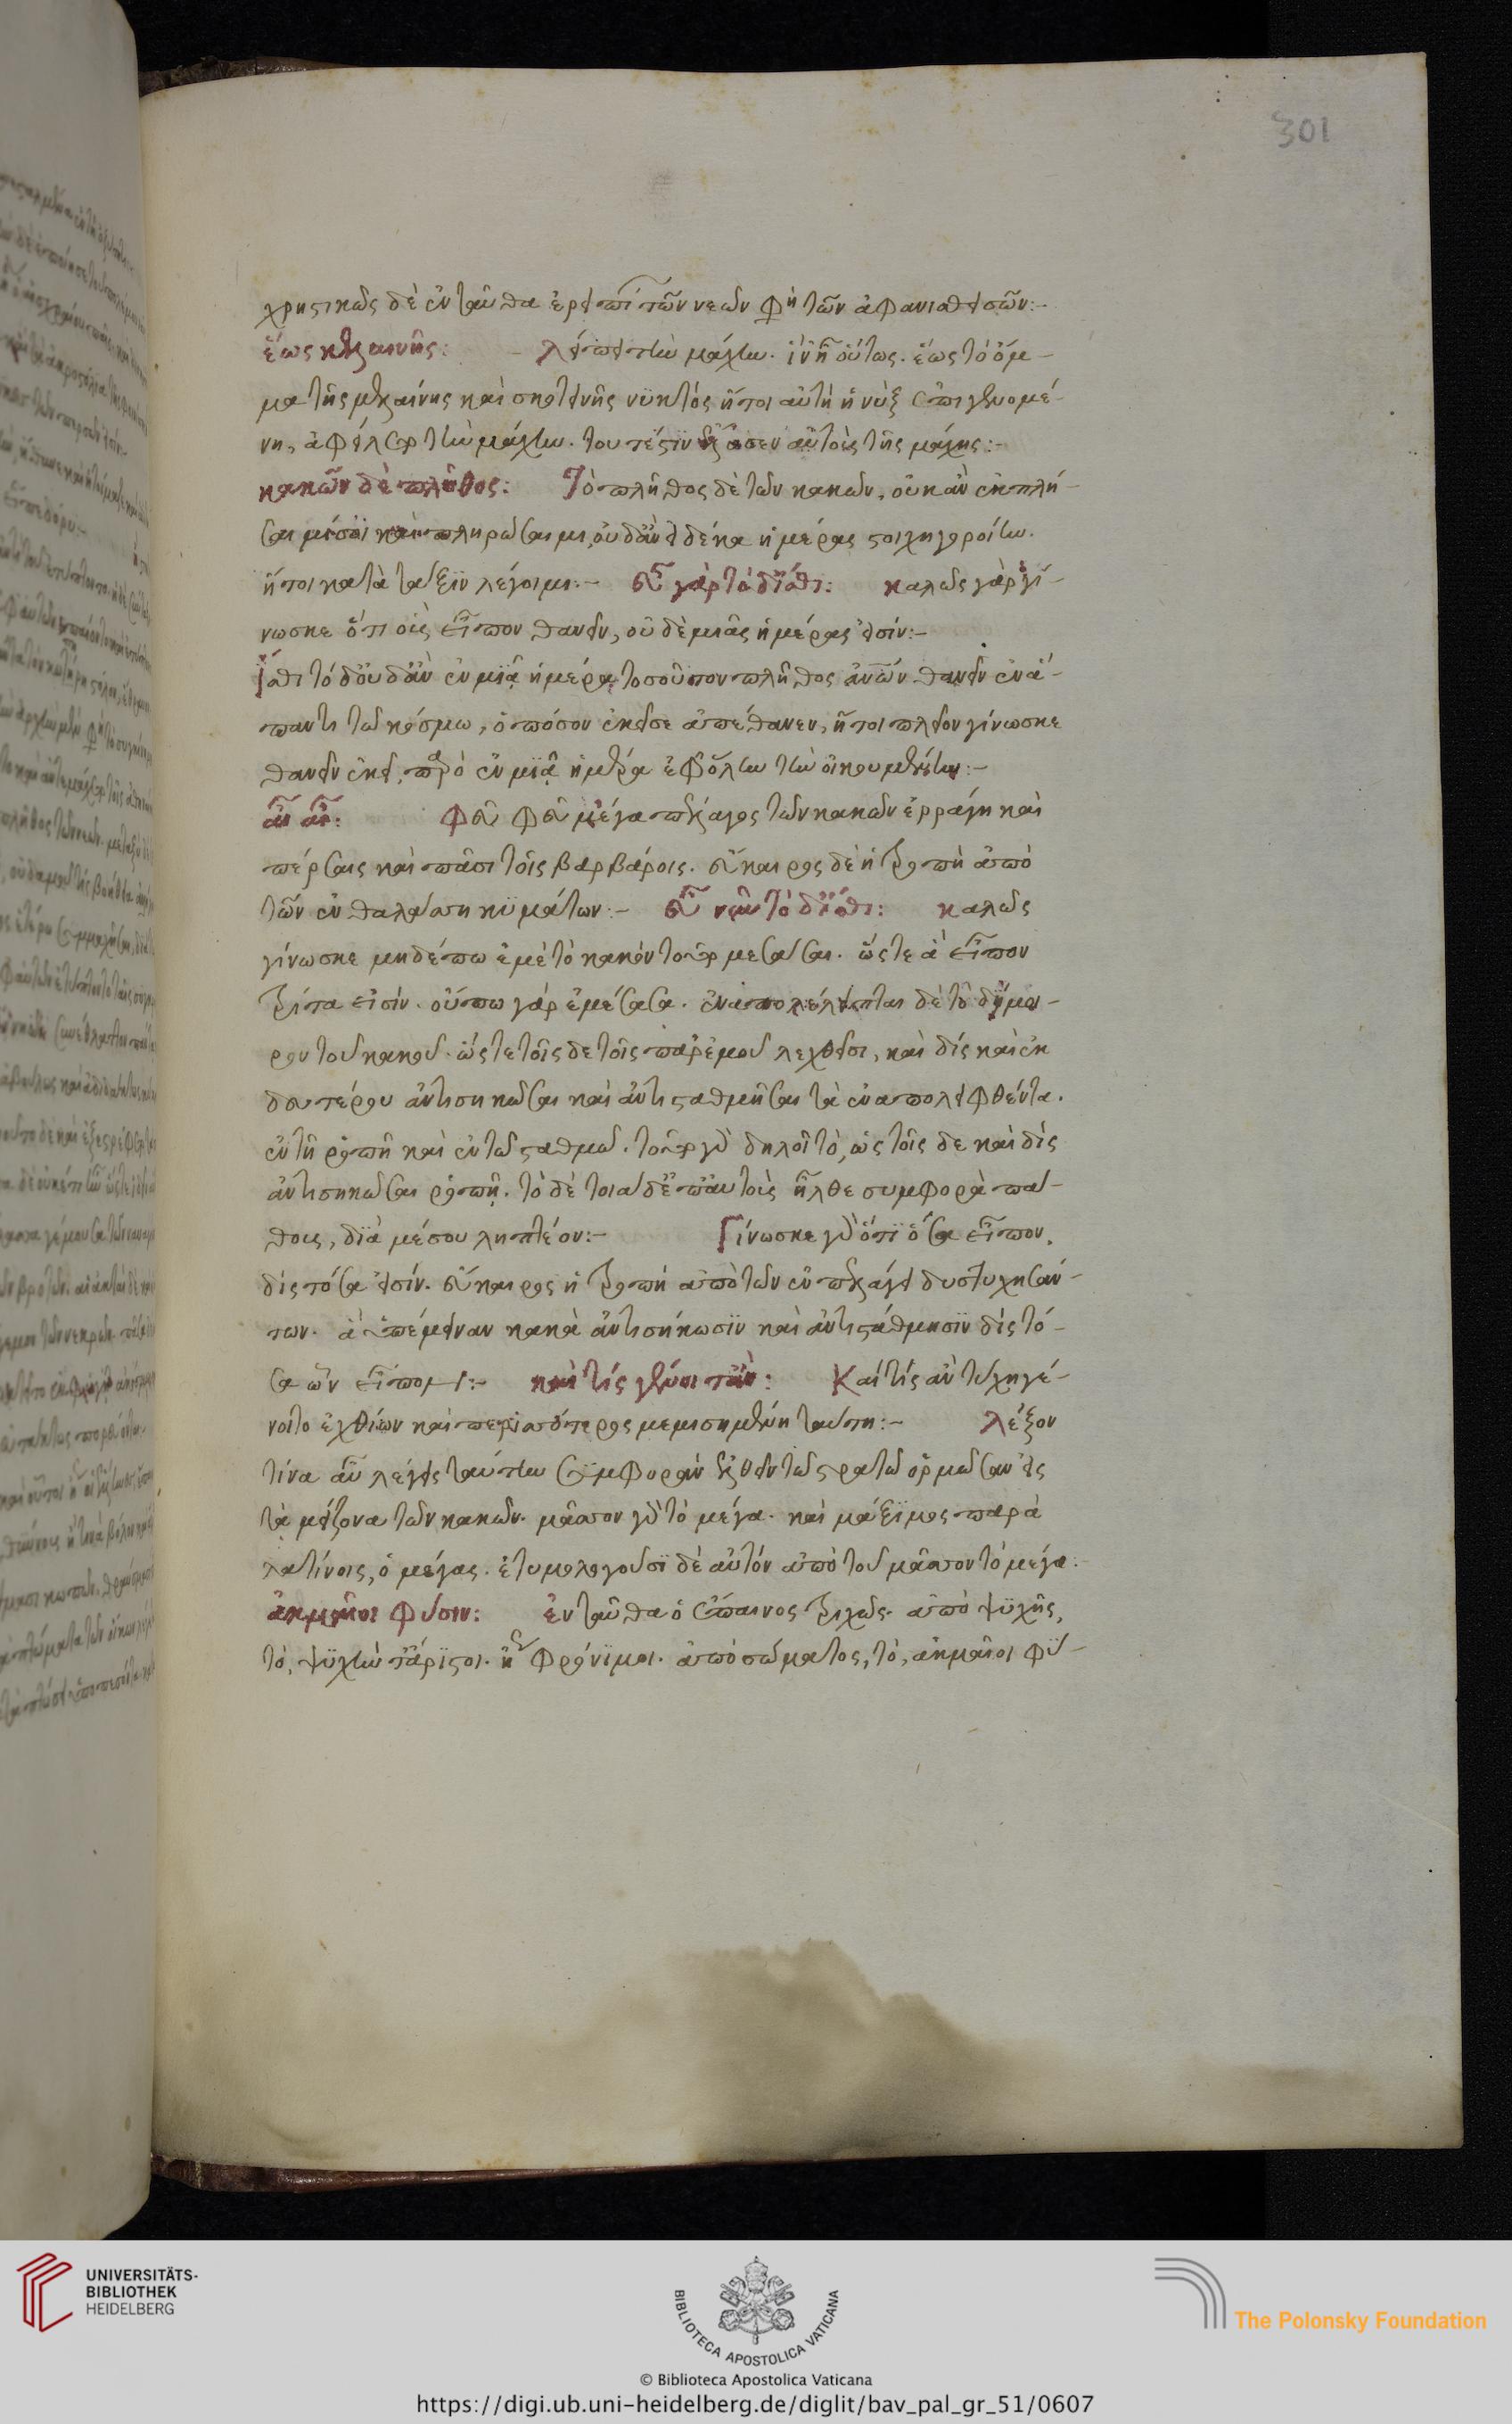 301
χρηστικῶς δὲ ἐνταῦθα ἐρεῖ ἐπὶ τῶν νεῶν φησὶ τῶν ἀφανισθεισῶν:-
ἕως κελαινῆς: λείπει τὴν μάχην. ἵν' ᾖ οὕτως. ἕως τὸ ὄμ-
μα τῆς μελαίνης καὶ σκοτεινῆς νυκτός ἤτοι αὐτὴ ἡ νὺξ ἐπιγενομέ-
νη, ἀφείλετο τὴν μάχην. τουτέστιν ἔπαυσεν αὐτοὺς τῆς μάχης:-
κακῶν δὲ πλῆθος: Τὸ πλῆθος δὲ τῶν κακῶν, οὐκ ἂν ἐκπλή-
σαιμί σοι καὶ πληρώσαιμι, οὐδ' ἂν εἰ δέκα ἡμέρας στοιχηγοροίην.
ἤτοι κατὰ τάξιν λέγοιμι:- εὖ γὰρ τόδ' ἴσθι: καλῶς γὰρ γί-
νωσκε ὅτι οἷς εἶπον θανεῖν, οὐδὲ μιᾶς ἡμέρας εἰσίν:-
ἴσθι τόδ' οὐδ' ἂν ἐν μιᾷ ἡμέρᾳ τοσοῦτον πλῆθος ἀνθρώπων θανεῖν ἐν ἅ-
παντι τῶ κόσμω, ὁπόσον ἐκεῖσε ἀπέθανεν, ἤτοι πλεῖον γίνωσκε
θανεῖν ἐκεῖ, παρὸ ἐν μιᾷ ἡμέρα ἐφ' ὅλην τὴν οἰκουμένην:-
αἲ αἲ: φεῦ φεῦ μέγα πέλαγος τῶν κακῶν ἐρράγη καὶ
πέρσαις καὶ πᾶσι τοῖς βαρβάροις. εὔκαιρος δὲ ἡ τροπὴ ἀπὸ
τῶν ἐν θαλάσση κυμάτων:- εὖ νῦν τόδ' ἴσθι: καλῶς
γίνωσκε μηδέπω ἐμὲ τὸ κακὸν τοῦτο μεσάσαι. ὥστε ἃ εἶπον
τρίτα εἰσίν. οὔπω γὰρ ἐμέσασα. ἐναπολέλειπται δὲ τὸ δίμοι-
ρον τοῦ κακοῦ. ὥστε τοῖσδε τοῖς παρ' ἐμοῦ λεχθεῖσι, καὶ δίς καὶ ἐκ
δευτέρου ἀντισηκῶσαι καὶ ἀντισταθμῆσαι τὰ ἐναπολειφθέντα.
ἐν τῆ ῥοπῆ καὶ ἐν τῶ σταθμῶ. τοῦτο γὰρ δηλοῖ τὸ, ὡς τοῖσδε καὶ δὶς
ἀντισηκῶσαι ῥοπῇ. τὸ δὲ τοιάδ' ἐπ' αὐτοὺς ἦλθε συμφορὰ πά-
θους, διὰ μέσου ληπτέον:- Γίνωσκε γὰρ ὅτι ὅσα εἶπον.
δὶς τόσα εἰσίν. εὔκαιρος ἡ τροπή ἀπὸ τῶν ἐν πελάγει δυστυχησάν-
των. ἃ ὑπέμειναν κακὰ ἀντισήκωσιν καὶ ἀντιστάθμησιν δὶς τό-
σα ὧν εἴπομεν:- καὶ τίς γένοιτ' ἂν: Καὶ τίς ἂν τύχη γέ-
νοιτο ἐχθίων καὶ περισσότερος μεμισημένη ταύτη:- λέξον
τίνα αὖ λέγεις ταύτην συμφορὰν ἐλθεῖν τῶ στρατῶ ὁρμῶσαν εἰς
τὰ μείζονα τῶν κακῶν. μᾶσσον γὰρ τὸ μέγα. καὶ μάξιμος παρὰ
λατίνοις, ὁ μέγας. ἐτυμολογοῦσι δὲ αὐτόν ἀπὸ τοῦ μᾶσσον τὸ μέγα.
ἀκμαῖοι φύσιν: ἐνταῦθα ὁ ἔπαινος τριχῶς. ἀπὸ ψυχῆς,
τό, ψυχὴν τ' ἄριστοι. ἤγουν φρόνιμοι. ἀπὸ σώματος, τό, ἀκμαῖοι φύ-
UNIVERSITÄTS-
BIBLIOTHEK
HEIDELBERG
BIBLIOTECA APOSTOLICA VATICANA
The Polonsky Foundation
© Biblioteca Apostolica Vaticana
https://digi.ub.uni-heidelberg.de/diglit/bav_pal_gr_51/0607